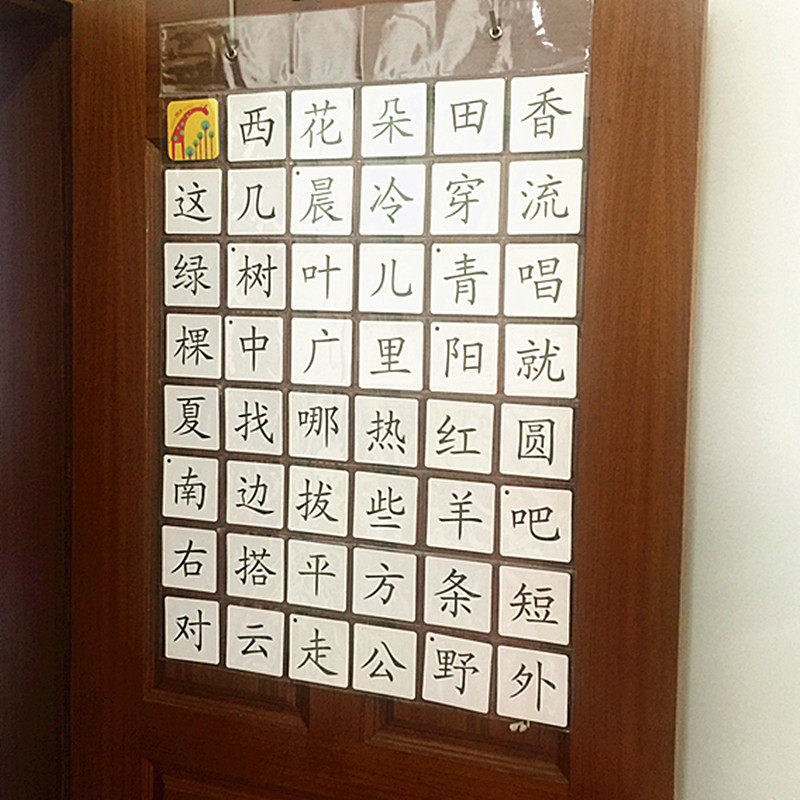 西 花 朵 田 香
这 几 晨 冷 穿 流
绿 树 叶 儿 青 唱
棵 中 广 里 阳 就
夏 找 哪 热 红 圆
南 边 拔 些 羊 吧
右 搭 平 方 条 短
对 云 走 公 野 外